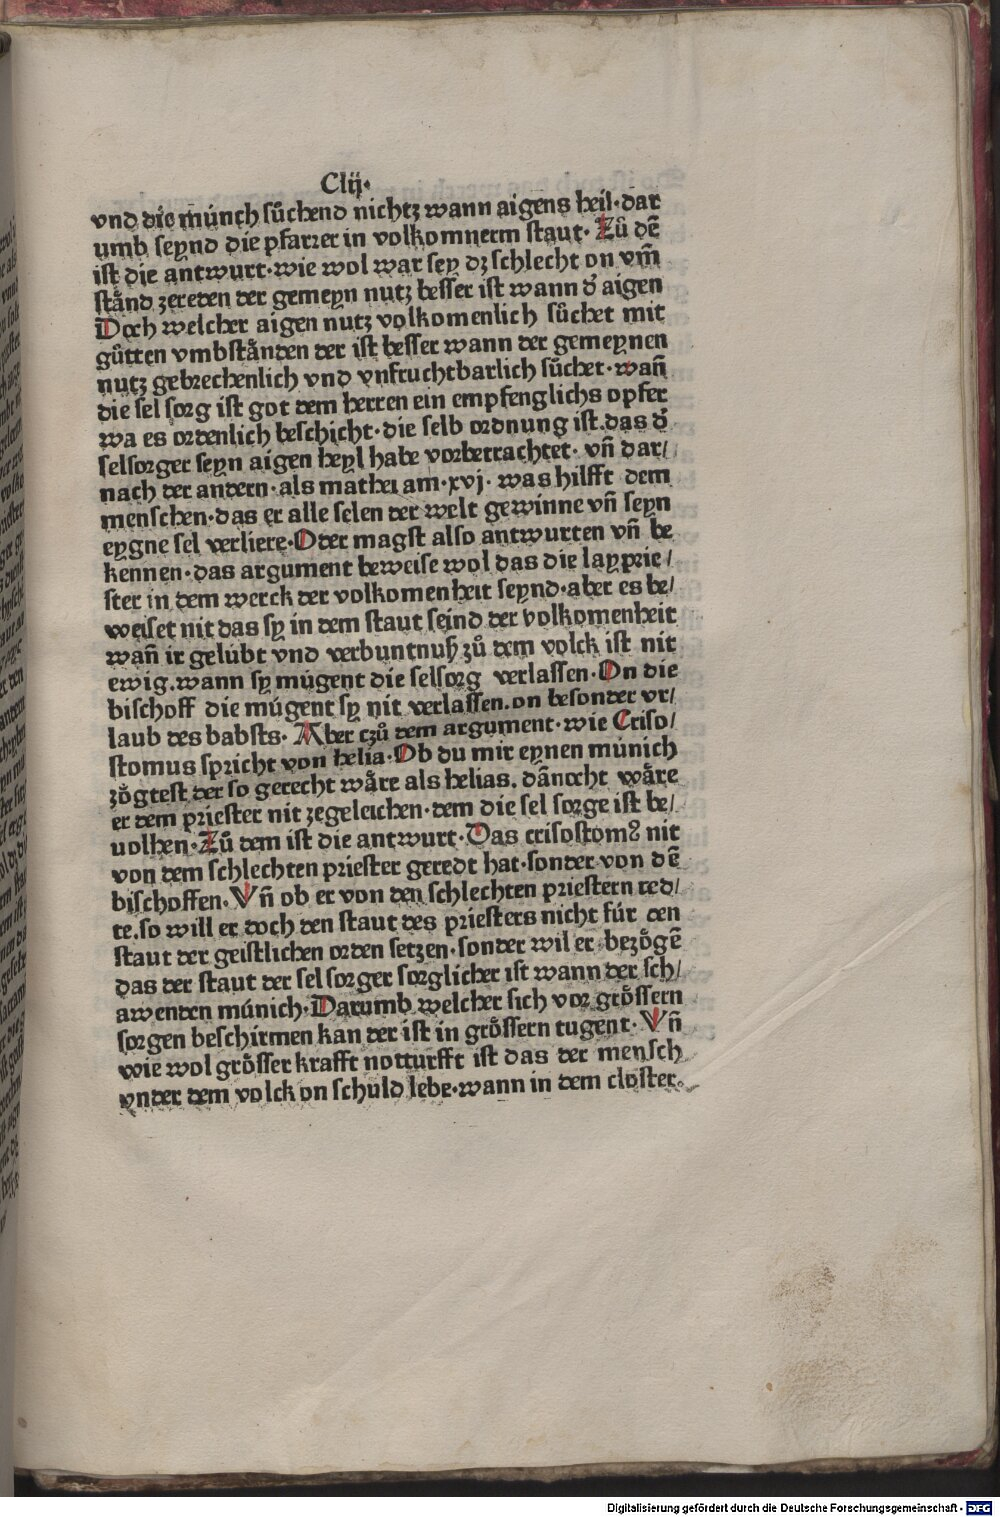 Clij·
vnd die múnch sůchend nichtz wann aigens heil·dar
umb seynd die pfarrer in volkomnerm staut· Zů dē
ist die antwurt·wie wol war sey dz schlecht on vm̄
stånd zereden der gemeyn nutz besser ist wann d̕ aigen
Doch welcher aigen nutz volkomenlich sůchet mit
gůtten vmbstånden der ist besser wann der gemeynen
nutz gebrechenlich vnd vnfruchtbarlich sůchet·wañ
die sel sorg ist got dem herren ein empfenglichs opfer
wa es ordenlich beschicht·die selb ordnung ist.das d̕
selsorger seyn aigen heyl habe vorbetrachtet· vñ dar/
nach der andern·als mathei am·xvj· was hilfft dem
menschen·das er alle selen der welt gewinne vñ seyn
eygne sel verliere·Oder magst also antwurten vñ be
kennen·das argument beweise wol das die lay prie/
ster in dem werck der volkomenheit seynd·aber es be/
weiset nit das sy in dem staut seind der volkomenheit
wañ ir gelúbt vnd verbuntnuß zů dem volck ist nit
ewig.wann sy múgent die selsorg verlassen·On die
bischoff die múgent sy nit verlassen.on besonder vr/
laub des babsts· Aber czů dem argument·wie Criso/
stomus spricht von helia·Ob du mir eynen múnich
zögtest der so gerecht wåre als helias. dānocht wåre
er dem priester nit zegeleichen·dem die sel sorge ist be/
uolhen·Zů dem ist die antwurt·Das crisostomꝰ nit
von dem schlechten priester geredt hat·sonder von dē
bischoffen·Vñ ob er von den schlechten priestern red/
te.so will er doch den staut des priesters nicht für den
staut der geistlichen orden setzen·sonder wil er bezögē
das der staut der sel sorger sorglicher ist wann der sch/
awenden múnich·Darumb welcher sich vor grössern
sorgen beschirmen kan der ist in grössern tugent·Vñ
wie wol grösser krafft notturfft ist das der mensch
vnder dem volck on schuld lebe·wann in dem closter.
Digitalisierung gefördert durch die Deutsche Forschungsgemeinschaft - DFG